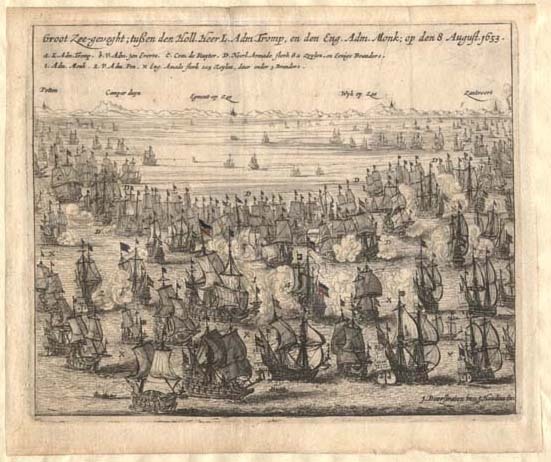 Groot Zee-geveght; tußen den Holl. Heer L. Adm. Tromp, en den Eng. Adm. Monk; op den 8 August. 1653.
a. L. Adm. Tromp. b. V. Adm. Jan Everts. C. Com. de Ruyter. D. Neerl. Armade sterk 82 Zeylen, en Eenige Branders.
1. Adm. Monk. 2. V. Adm. Pen. Eng. Amade sterk Zeylen, daer onder 5 Branders.
Petten Camper duyn Egmont op Zee Wyk op Zee Zantvoort